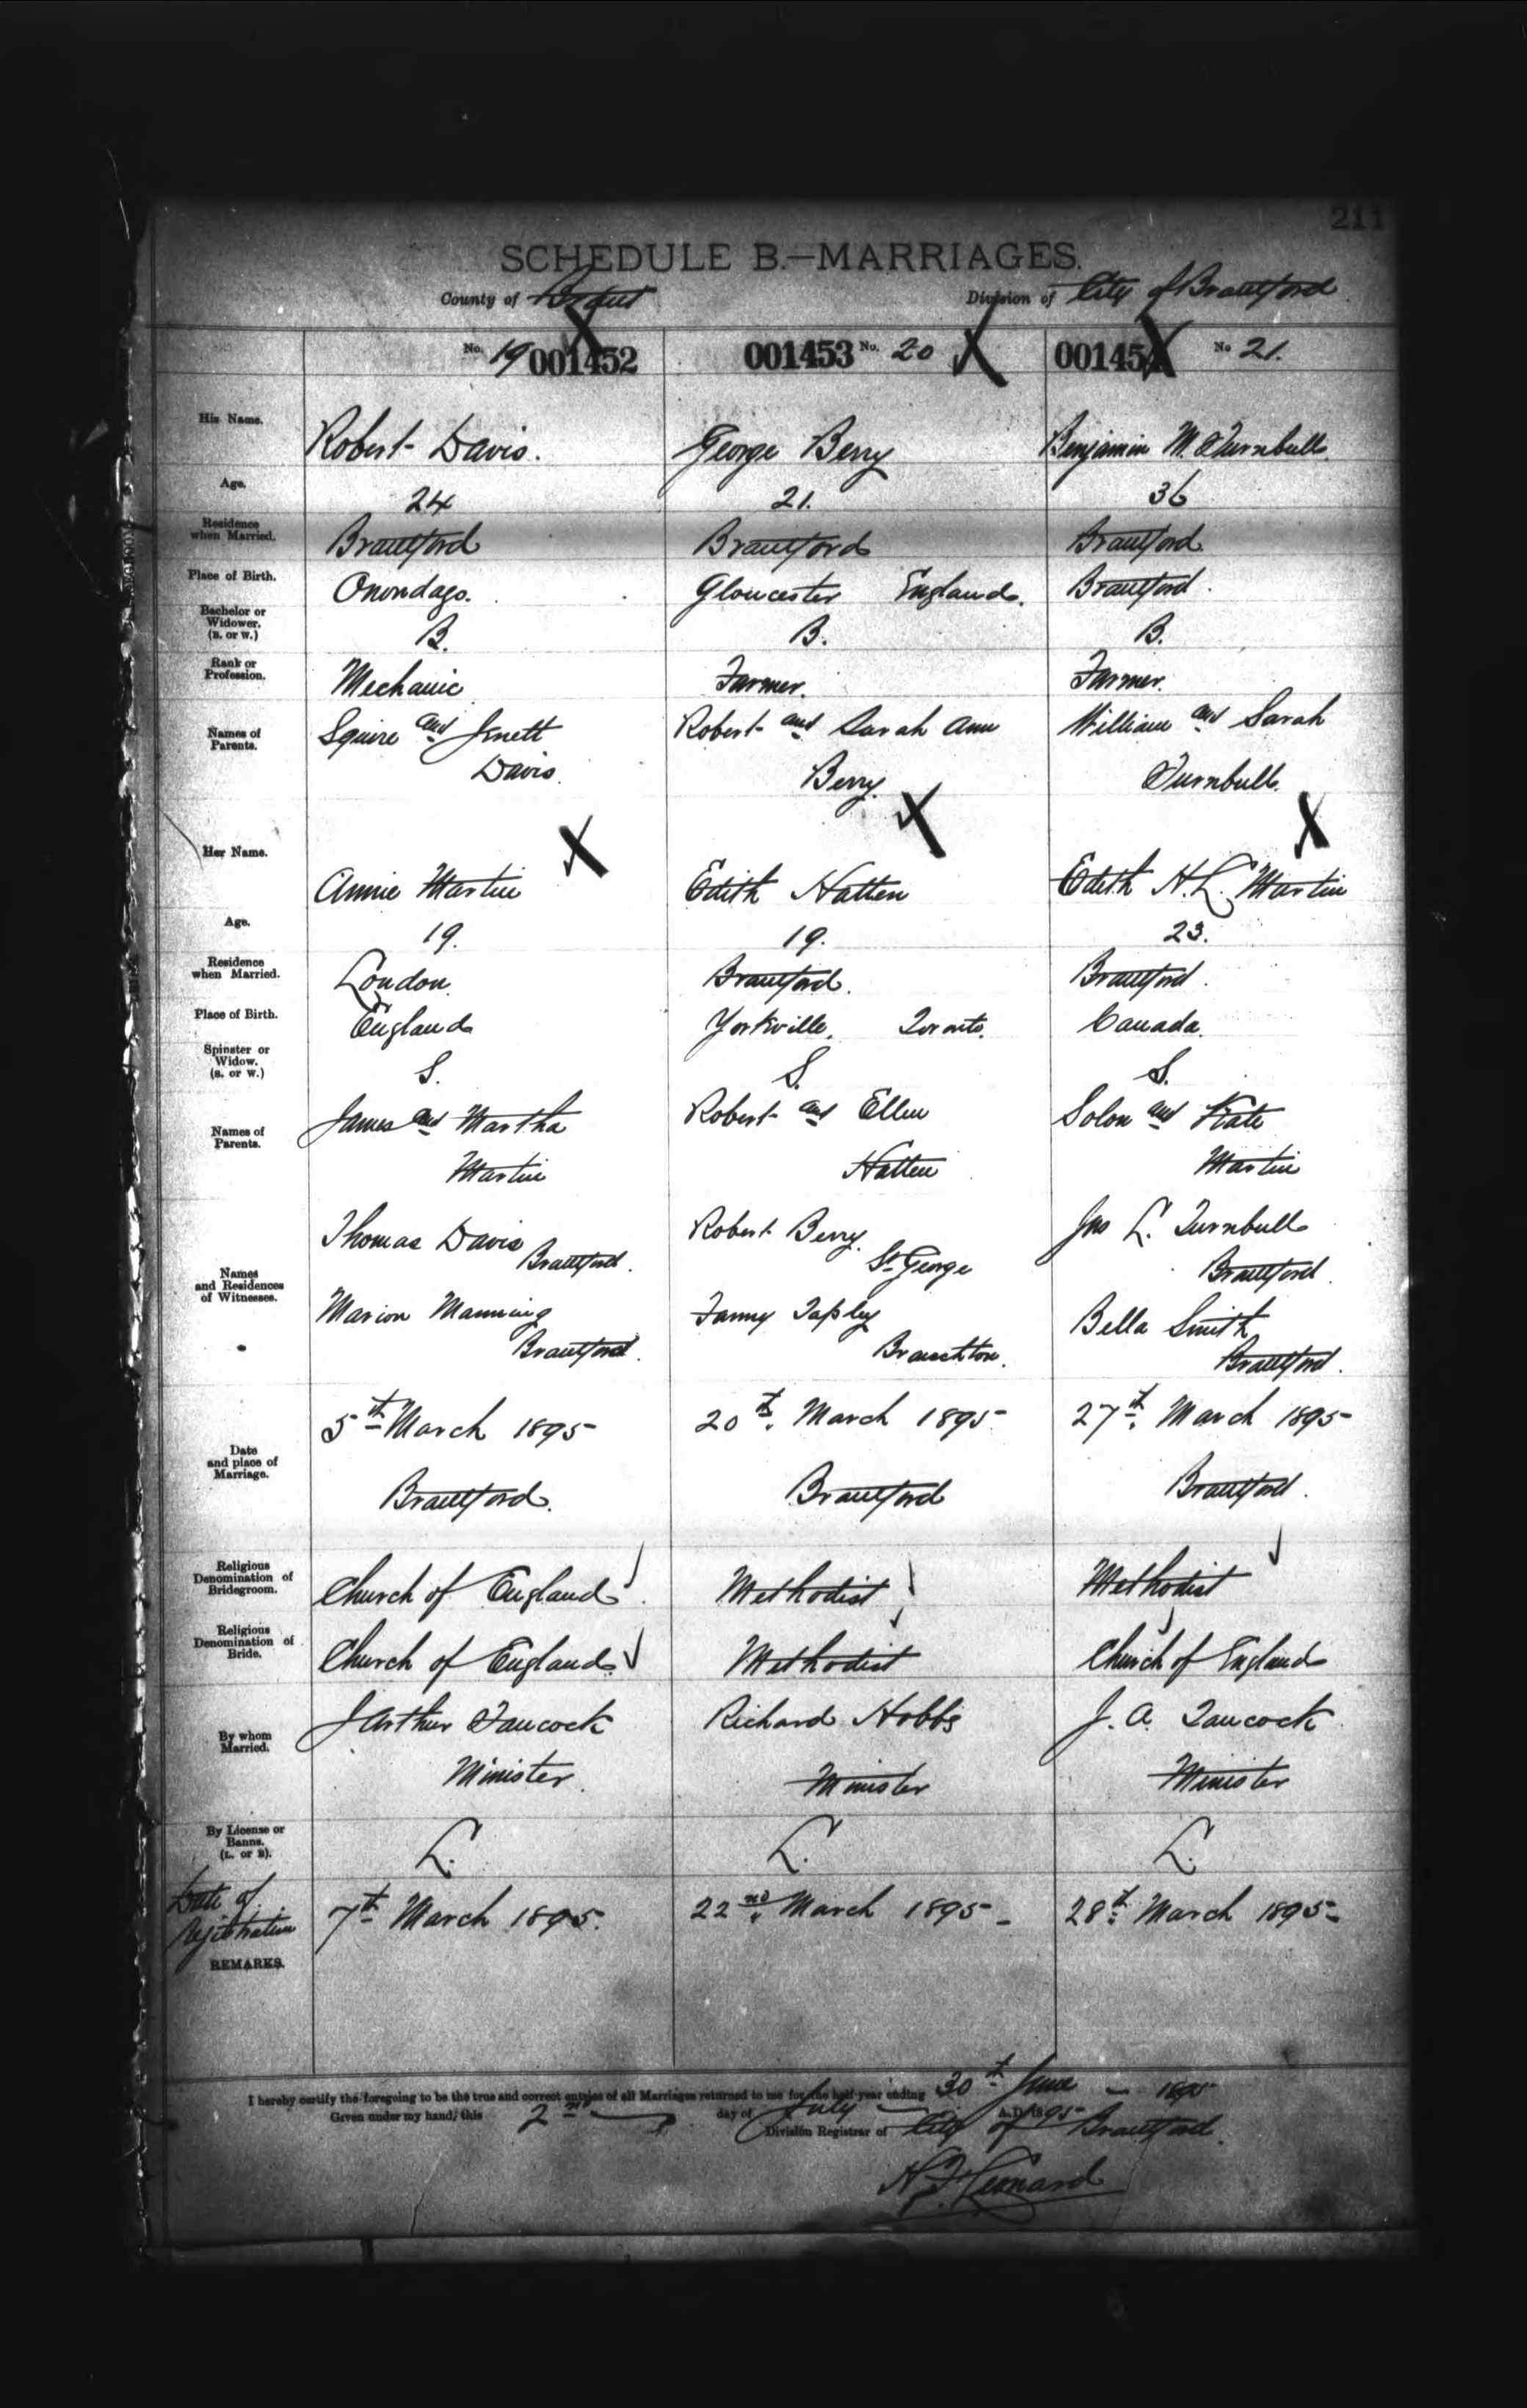 211
SCHEDULE B.—MARRIAGES.
County of Brant Division of City of Brantford
No. 19 001452 001453 No. 20 001454 No 21.
His Name. Robert Davis. George Berry Benjamin M. Turnbull
Age. 24 21. 36
Residence when Married. Brantford Brantford Brantford
Place of Birth. Onondago. Gloucester England. Brantford.
Bachelor or Widower. (B. or W.) B. B. B.
Rank or Profession. Mechanic Farmer. Farmer.
Names of Parents. Squire and Jenett Robert and Sarah Ann William and Sarah
Davis. Berry. Turnbull.
Her Name. Annie Martin Edith Hatten Edith H. L. Martin
Age. 19. 19. 23.
Residence when Married. London Brantford. Brantford.
Place of Birth. England Yorkville, Toronto. Canada.
Spinster or Widow. (S. or W.) S. S. S.
Names of Parents. James and Martha Robert and Ellen Solon and Kate
Martin Hatten Martin
Names and Residences of Witnesses. Thomas Davis Robert Berry Jno L. Turnbull
Brantford. St George Brantford
Marion Manning Fanny Tapley Bella Smith
Brantford. Branchton. Brantford.
Date and place of Marriage. 5th March 1895 20th March 1895 27th March 1895
Brantford. Brantford Brantford.
Religious Denomination of Bridegroom. Church of England Methodist Methodist
Religious Denomination of Bride. Church of England Methodist Church of England
By whom Married. J Arthur Tancock Richard Hobbs J. A. Tancock
Minister Minister Minister
By License or Banns. (L. or B). L. L. L.
Date of Registration 7th March 1895. 22nd March 1895 28th March 1895
REMARKS.
I hereby certify the foregoing to be the true and correct entries of all Marriages returned to me for the half-year ending 30th June 1895
Given under my hand, this 2nd day of July A.D. 1895
Division Registrar of City of Brantford.
H. F. Leonard